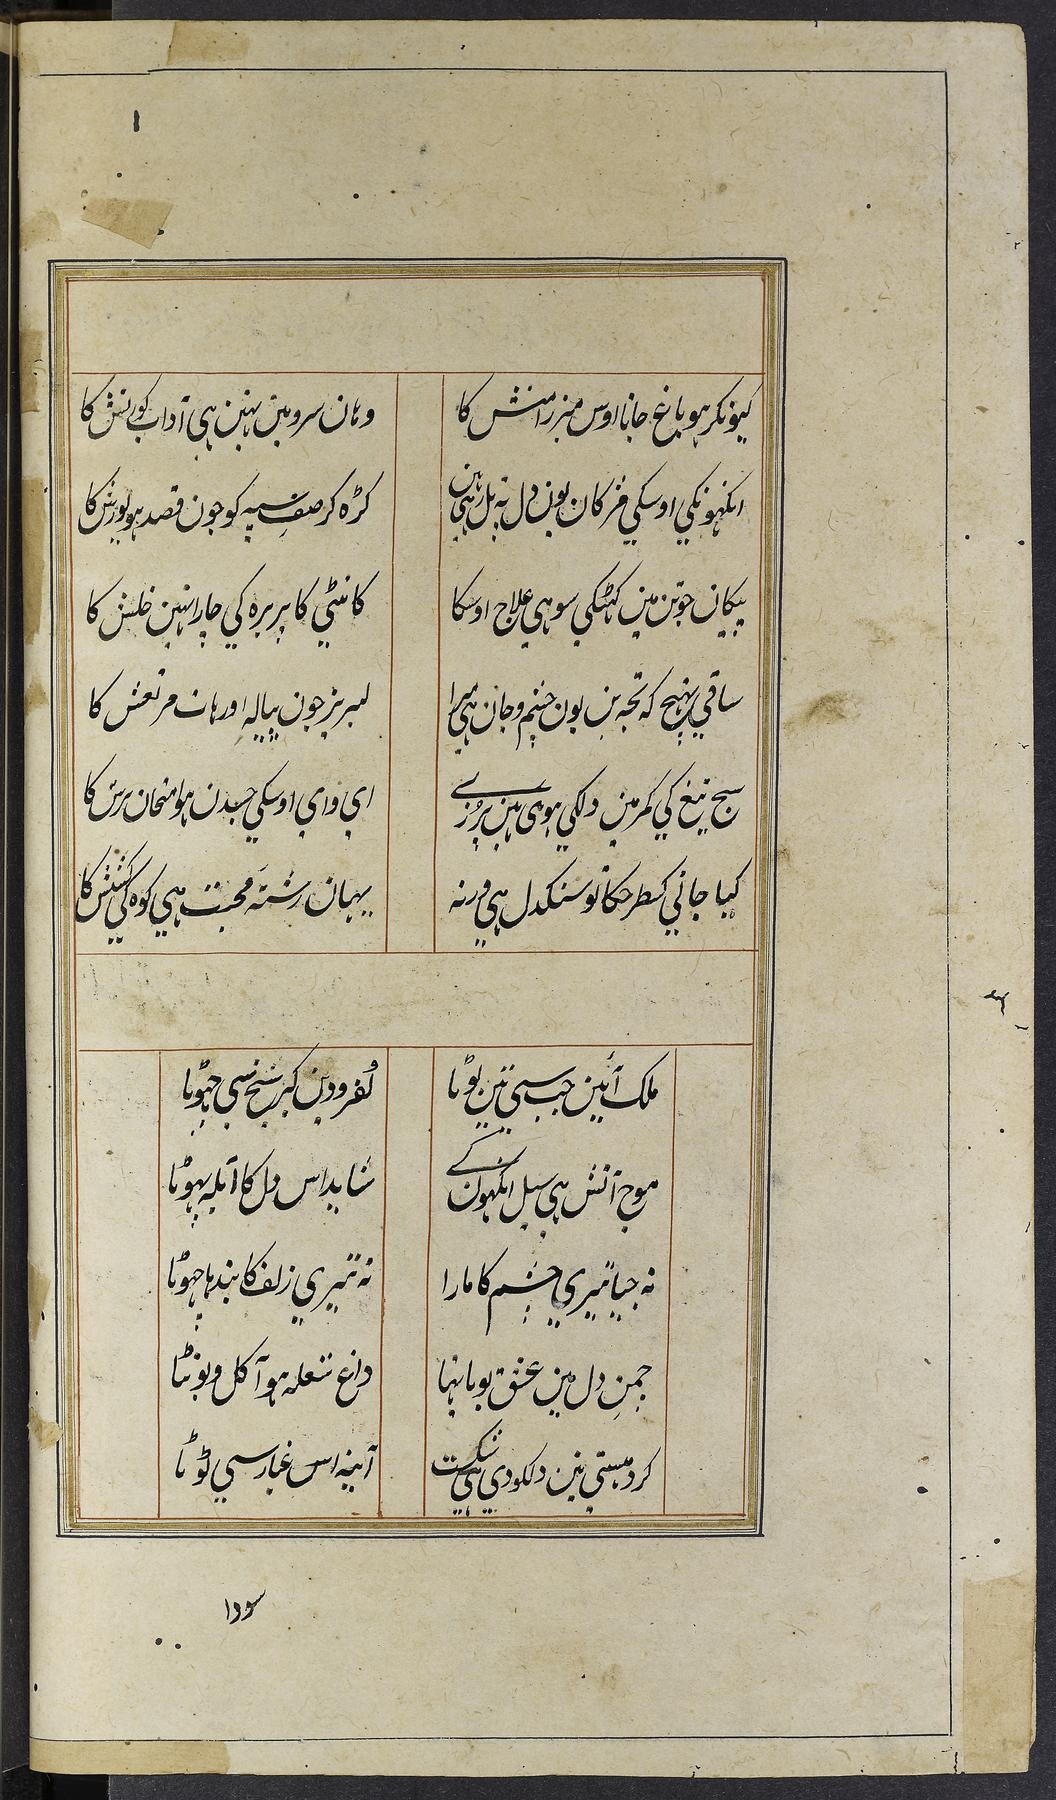 ۱
کیونکر ہو باغ جانا اوس میرزا منش کا
وہان سرو مین نہین ہی آداب کورنش کا
انکہونکی اوسکی مژکان یون دل پہ پل رہین ہین
کڑہ کر صف سپہ کو جون قصد ہو یورش کا
پیکان جو تن مین کہٹکی سو ہی علاج اوسکا
کانٹی کا پر برہ کی چارا نہین خلش کا
ساقی پہنچ کہ تجہ بن یون چشم و جان ہی میرا
لبریز جون پیالہ اور ہات مرتعش کا
سج تیغ کی کمر مین دلکی ہوی ہین پرزے
ای وای اوسکی جسدن ہو امتحان برش کا
کیا جانی کسطرحکا تو سنکدل ہی ورنہ
یہان رشتہ محبت ہی کوہ کی کشش کا
ملک آئین جب سی تین لوٹا
کفر و دین کبر شیخ سی چہوٹا
موج آتش ہی سیل انکہون کے
شاید اس دل کا آبلہ پہوٹا
نہ جیا تیری چشم کا مارا
نہ تیری زلف کا بندہا چہوٹا
چمن دل مین عشق بویا تہا
داغ شعلہ ہوا کل و بوٹا
کرد ہستی نین دلکو دی ہی شکست
آینہ اس غبار سی ٹوٹا
سودا